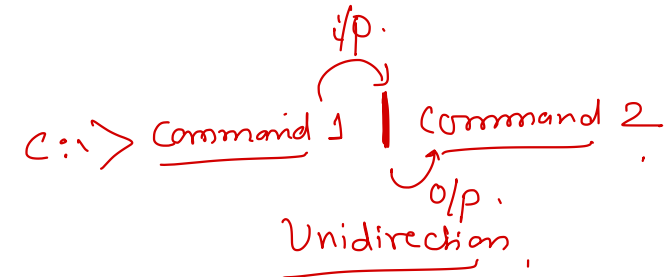 i/p.
C:\> Command 1 | Command 2.
O/p.
Unidirection.